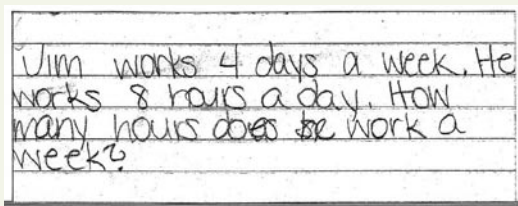 Jim works 4 days a week. He
works 8 hours a day. How
many hours does he work a
week?